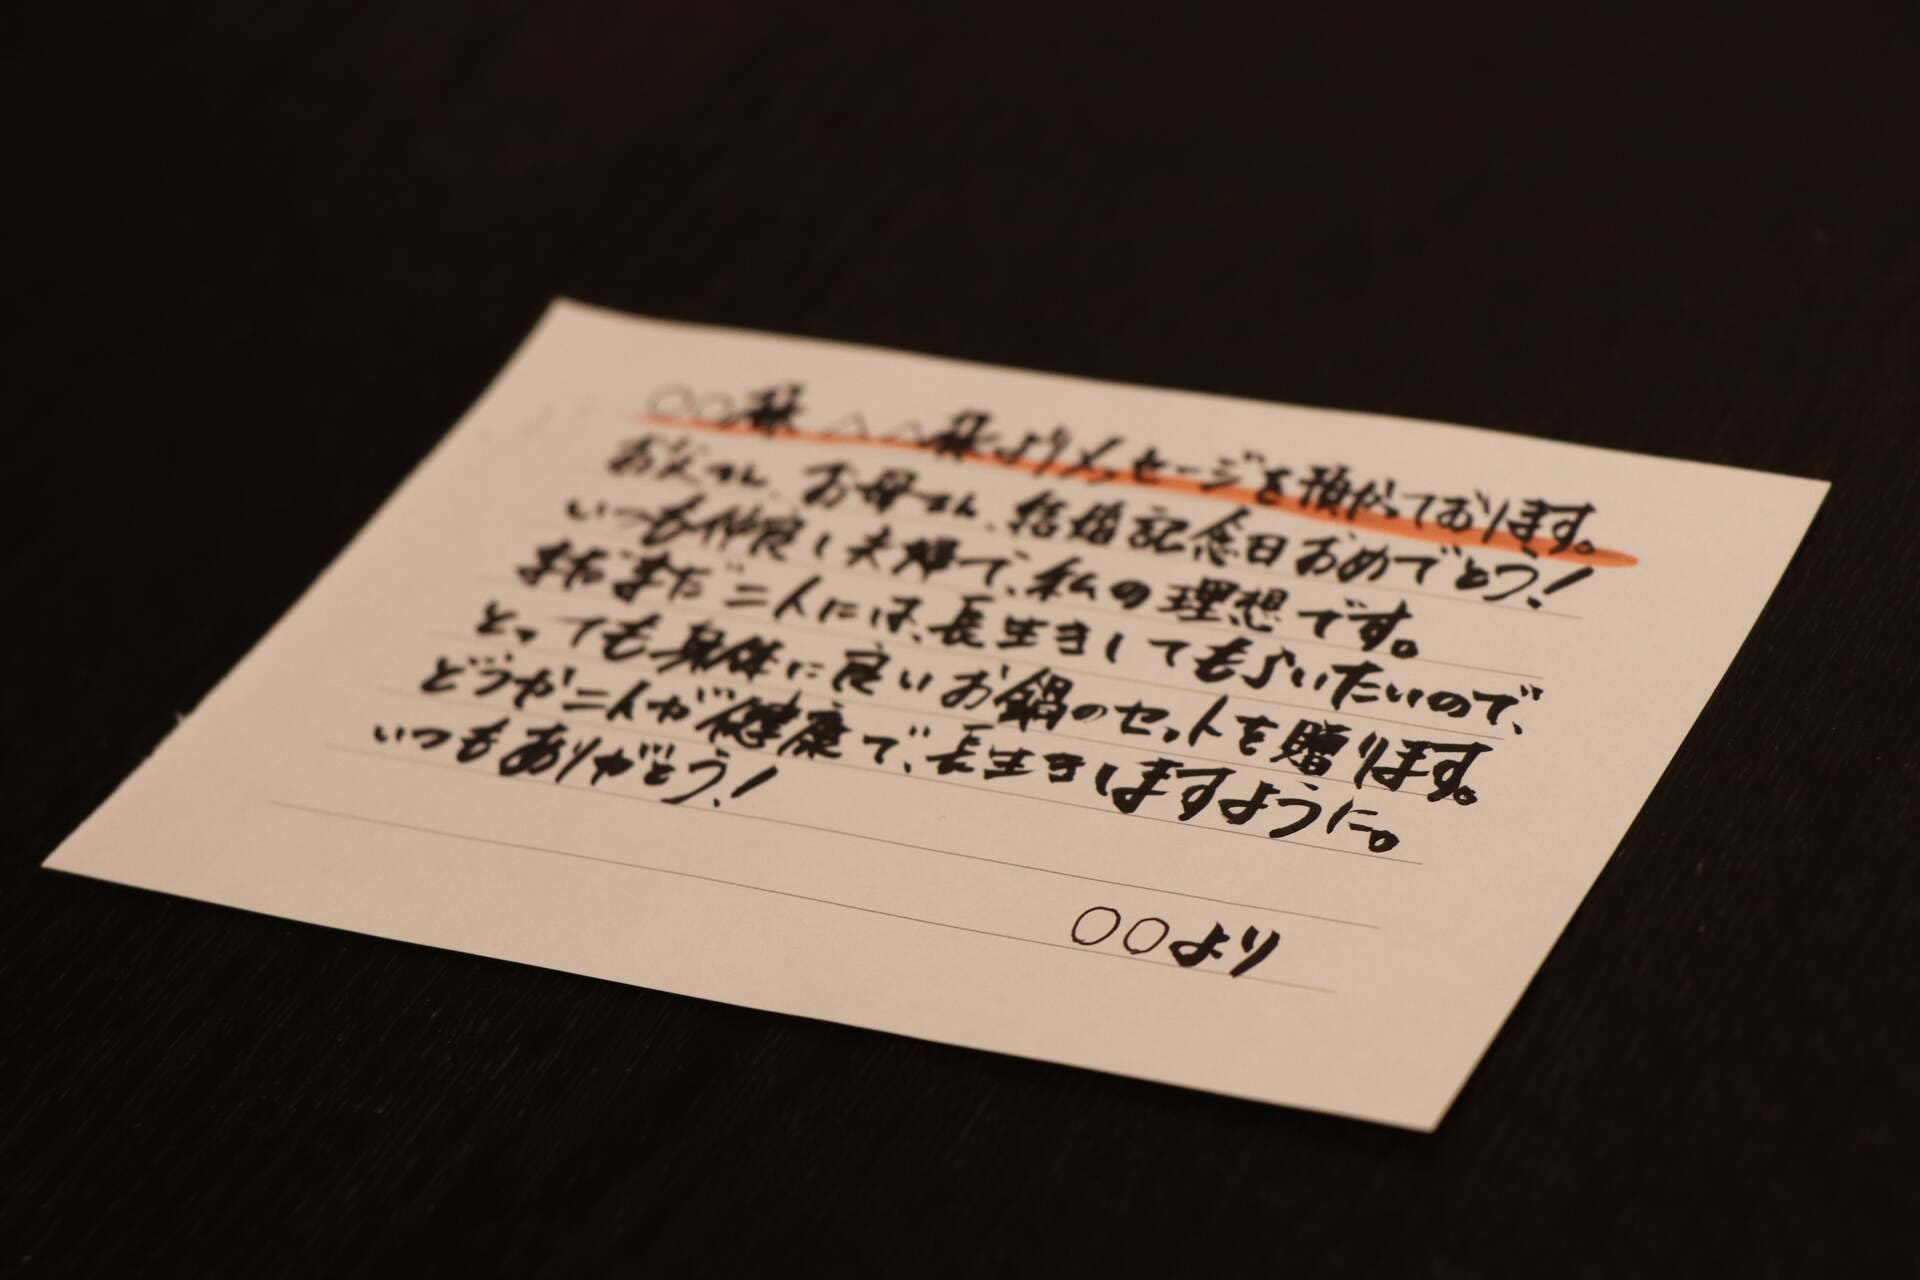 ○○様 △△様よりメッセージを預かっております。
お父さん、お母さん、結婚記念日おめでとう!
いつも仲良し夫婦で、私の理想です。
まだまだ二人には、長生きしてもらいたいので、
とっても身体に良いお鍋のセットを贈ります。
どうか二人が健康で、長生きしますように。
いつもありがとう!
○○より